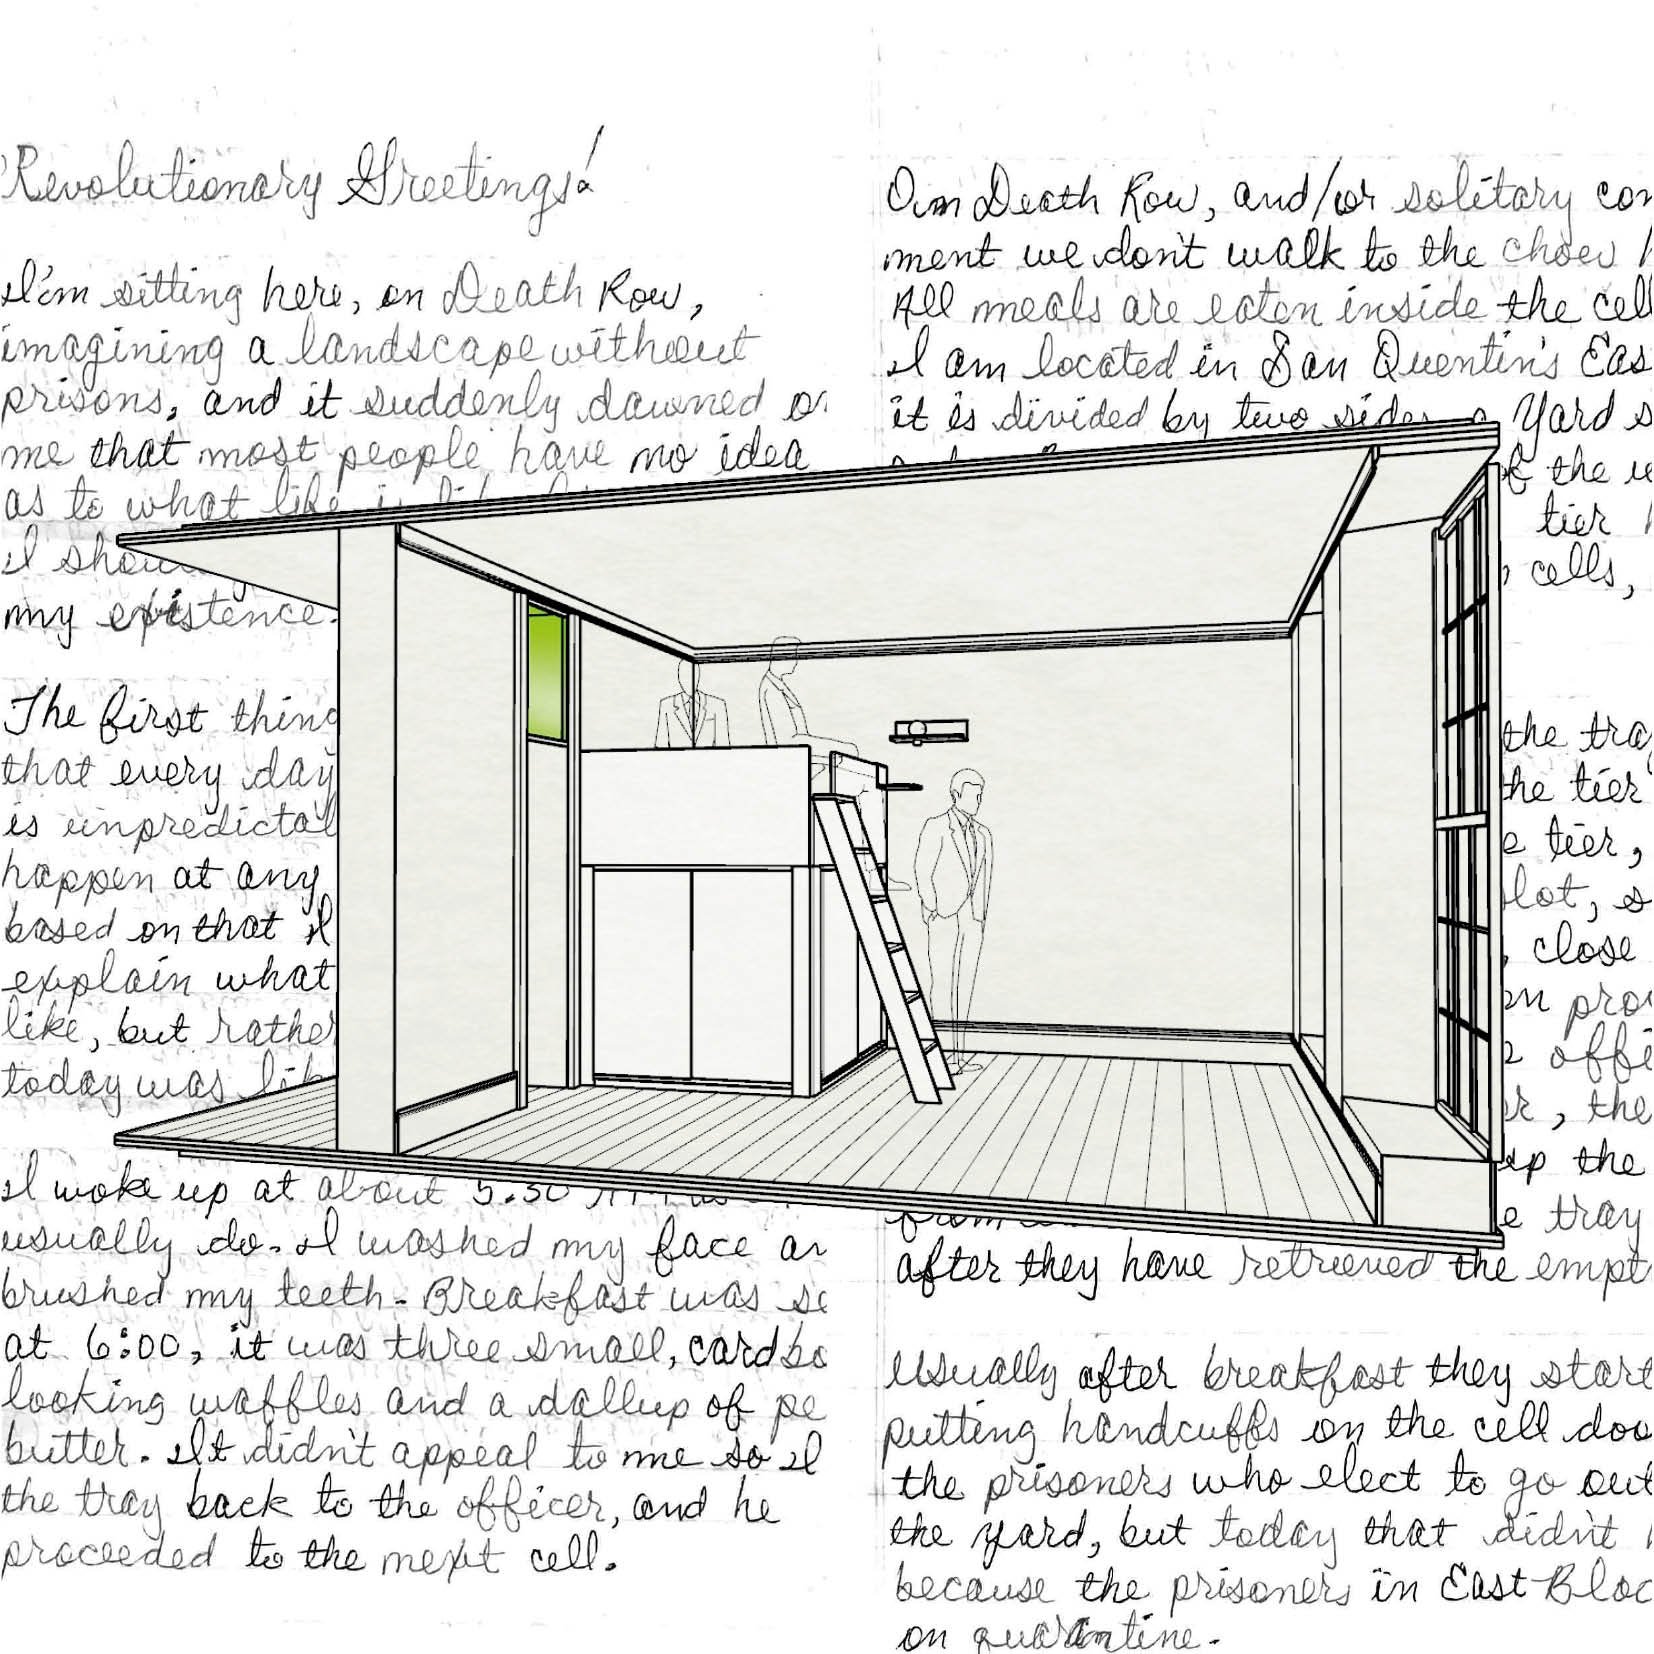 Revolutionary Greetings!
I'm sitting here, on Death Row,
imagining a landscape without
prisons, and it suddenly dawned on
me that most people have no idea
as to what life is like
I should
my existence.
The first thing
that every day
is unpredictable
happen at any
based on that I
explain what
like, but rather
today was like
I woke up at about 5:30 AM as
usually do. I washed my face an
brushed my teeth. Breakfast was se
at 6:00, it was three small, cardbo
looking waffles and a dallup of pe
butter. It didn't appeal to me so I
the tray back to the officer, and he
proceeded to the next cell.
On Death Row, and/or solitary con
ment we don't walk to the chow h
All meals are eaten inside the cell
I am located in San Quentin's Eas
it is divided by two sides, a Yard s
of the
tier
cells,
the tray
the tier
tier,
slot, s
close
on prov
offi
the
up the
from
tray
after they have retrieved the empt
Usually after breakfast they start
putting handcuffs on the cell doo
the prisoners who elect to go out
the yard, but today that didn't h
because the prisoners in East Bloc
on quarantine.